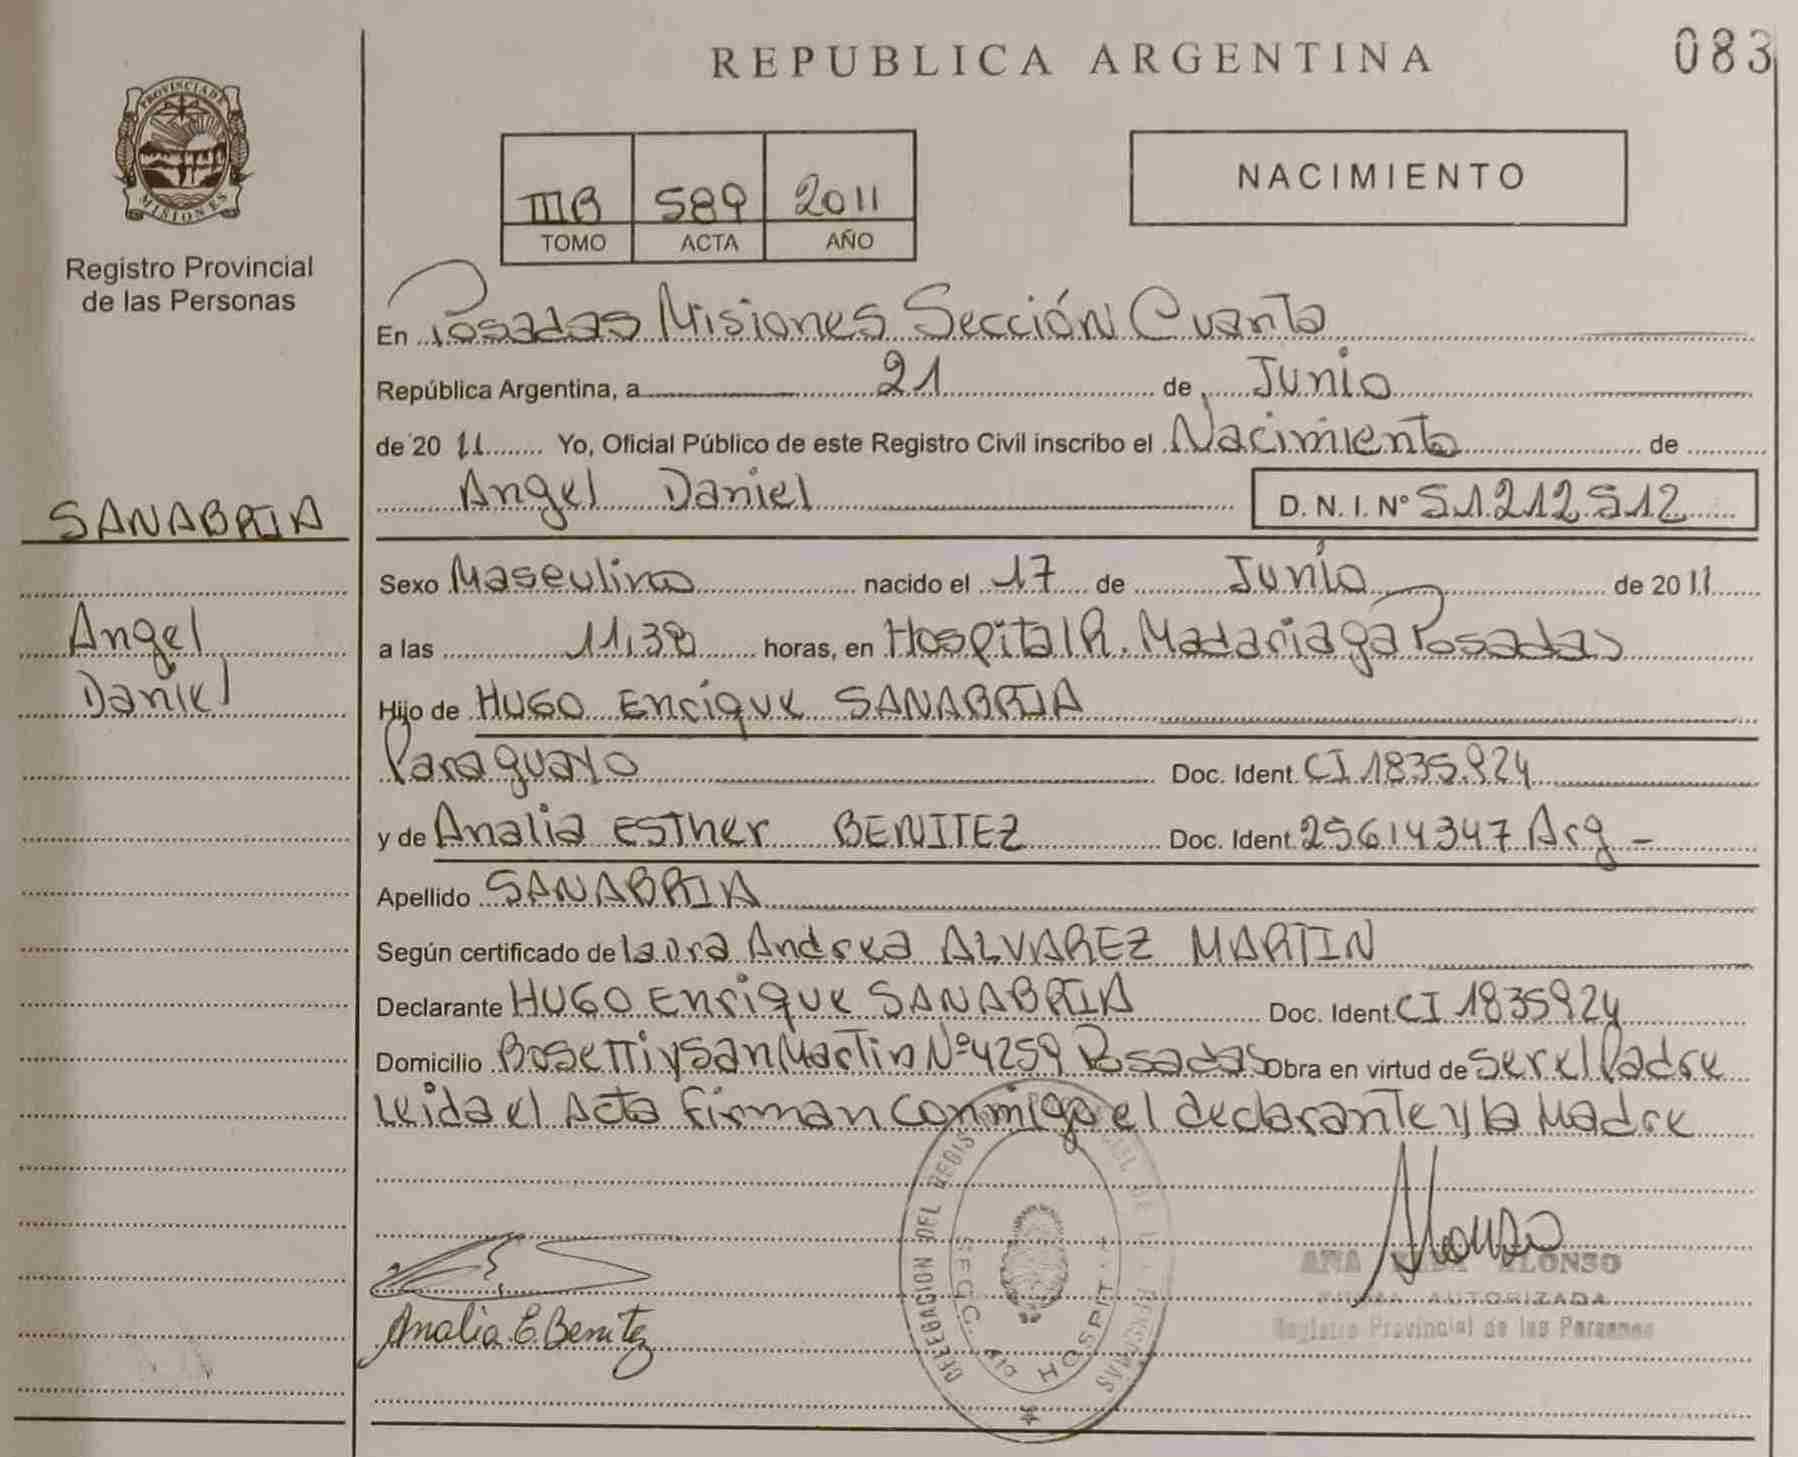 REPUBLICA ARGENTINA
083
PROVINCIA DE
MISIONES
Registro Provincial
de las Personas
IIIB 589 2011
TOMO ACTA AÑO
NACIMIENTO
En Posadas Misiones Sección Cuarta
República Argentina, a 21 de Junio
de 2011 Yo, Oficial Público de este Registro Civil inscribo el Nacimiento de
Angel Daniel D. N. I. Nº 51.212.512
SANABRIA
Angel
Daniel
Sexo Masculino nacido el 17 de Junio de 2011
a las 11,38 horas, en Hospital R. Madariaga Posadas
Hijo de HUGO Enrique SANABRIA
Paraguayo Doc. Ident. CI 1835.924
y de Analia ESTher BENITEZ Doc. Ident. 25614347 Arg -
Apellido SANABRIA
Según certificado de Laura Andrea ALVAREZ MARTIN
Declarante HUGO Enrique SANABRIA Doc. Ident. CI 1835924
Domicilio Bosetti y San Martin Nº 4259 Posadas Obra en virtud de ser el Padre
Leida el Acta firman conmigo el declarante y la Madre
DELEGACION DEL
SECC.
HOSPIT
Analia E. Benitez
Alonso
ALONSO
AUTORIZADA
Registro Provincial de las Personas